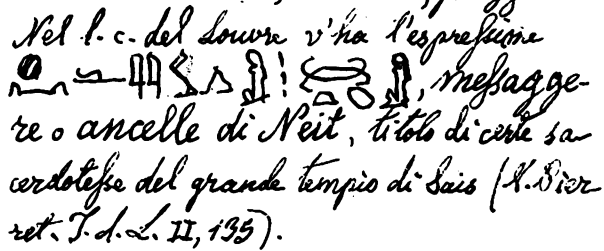 Nel l. c. del Louvre v'ha l'espressione
, messagge-
re o ancelle di Neit, titolo di certe sa-
cerdotesse del grande tempio di Sais (V. Pier-
ret. I. d. L. II, 135).